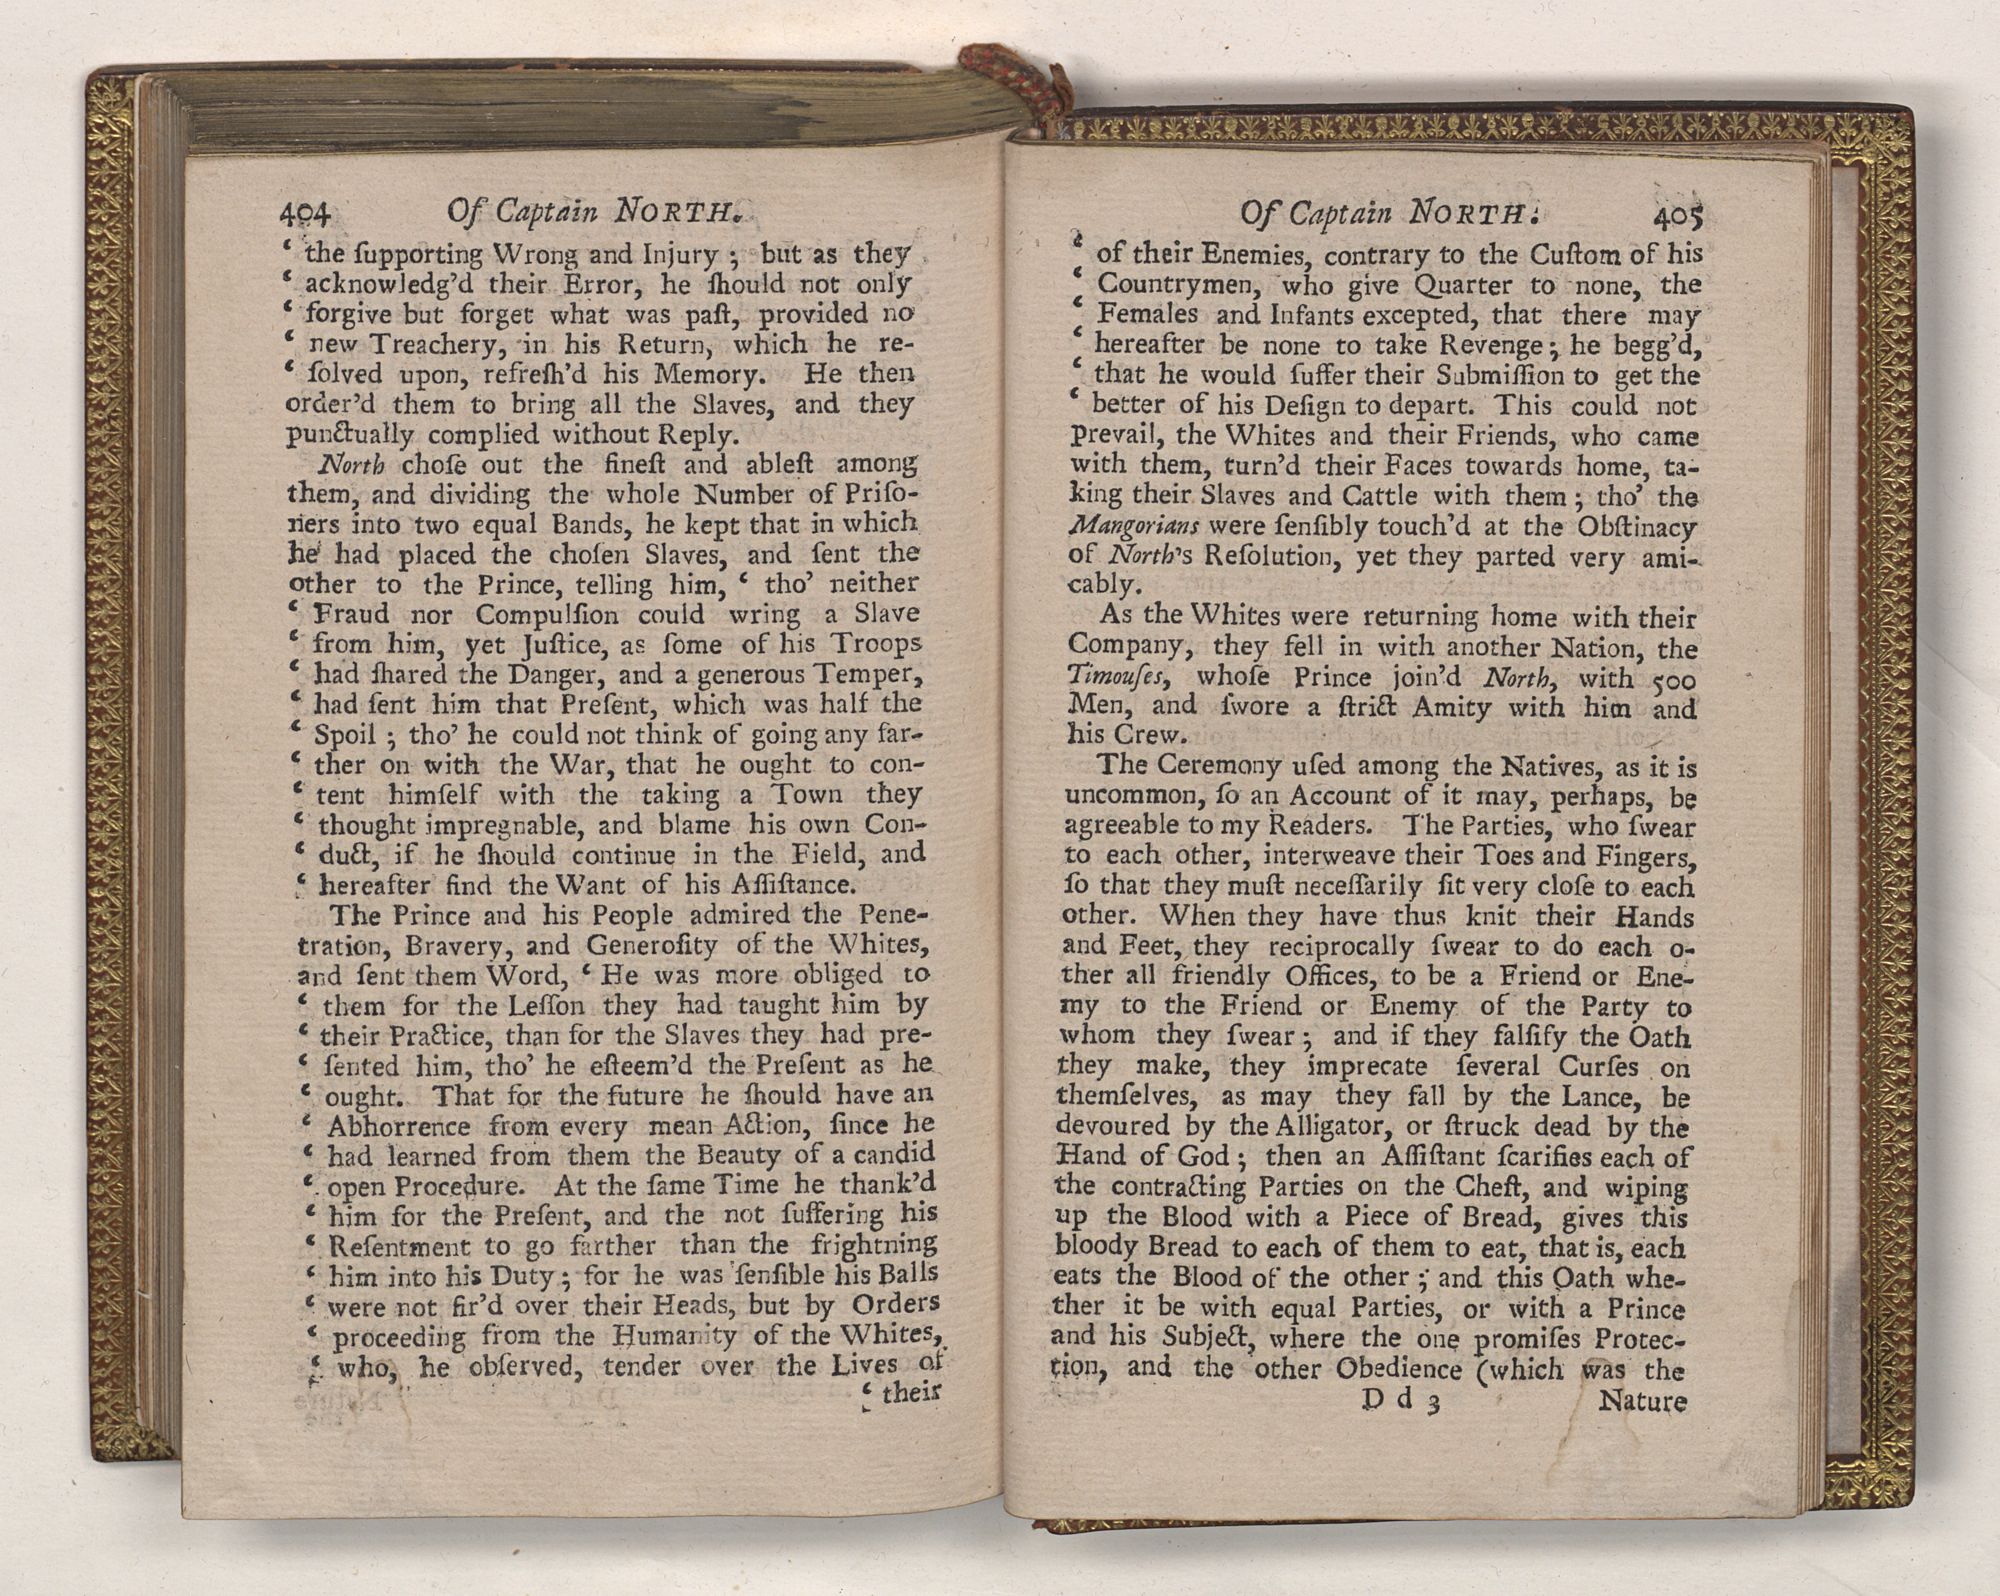 404 Of Captain NORTH.
‘ the ſupporting Wrong and Injury ; but as they
‘ acknowledg’d their Error, he ſhould not only
‘ forgive but forget what was paſt, provided no
‘ new Treachery, in his Return, which he re-
‘ ſolved upon, refreſh’d his Memory. He then
order’d them to bring all the Slaves, and they
punctually complied without Reply.
North choſe out the fineſt and ableſt among
them, and dividing the whole Number of Priſo-
ners into two equal Bands, he kept that in which
he had placed the choſen Slaves, and ſent the
other to the Prince, telling him, ‘ tho’ neither
‘ Fraud nor Compulſion could wring a Slave
‘ from him, yet Juſtice, as ſome of his Troops
‘ had ſhared the Danger, and a generous Temper,
‘ had ſent him that Preſent, which was half the
‘ Spoil ; tho’ he could not think of going any far-
‘ ther on with the War, that he ought to con-
‘ tent himſelf with the taking a Town they
‘ thought impregnable, and blame his own Con-
‘ duct, if he ſhould continue in the Field, and
‘ hereafter find the Want of his Aſſiſtance.
The Prince and his People admired the Pene-
tration, Bravery, and Generoſity of the Whites,
and ſent them Word, ‘ He was more obliged to
‘ them for the Leſſon they had taught him by
‘ their Practice, than for the Slaves they had pre-
‘ ſented him, tho’ he eſteem’d the Preſent as he
‘ ought. That for the future he ſhould have an
‘ Abhorrence from every mean Action, ſince he
‘ had learned from them the Beauty of a candid
‘ open Procedure. At the ſame Time he thank’d
‘ him for the Preſent, and the not ſuffering his
‘ Reſentment to go farther than the frightning
‘ him into his Duty ; for he was ſenſible his Balls
‘ were not fir’d over their Heads, but by Orders
‘ proceeding from the Humanity of the Whites,
‘ who, he obſerved, tender over the Lives of
‘ their
Of Captain NORTH. 405
‘ of their Enemies, contrary to the Cuſtom of his
‘ Countrymen, who give Quarter to none, the
‘ Females and Infants excepted, that there may
‘ hereafter be none to take Revenge ; he begg’d,
‘ that he would ſuffer their Submiſſion to get the
‘ better of his Deſign to depart. This could not
prevail, the Whites and their Friends, who came
with them, turn’d their Faces towards home, ta-
king their Slaves and Cattle with them ; tho’ the
Mangorians were ſenſibly touch’d at the Obſtinacy
of North’s Reſolution, yet they parted very ami-
cably.
As the Whites were returning home with their
Company, they fell in with another Nation, the
Timouſes, whoſe Prince join’d North, with 500
Men, and ſwore a ſtrict Amity with him and
his Crew.
The Ceremony uſed among the Natives, as it is
uncommon, ſo an Account of it may, perhaps, be
agreeable to my Readers. The Parties, who ſwear
to each other, interweave their Toes and Fingers,
ſo that they muſt neceſſarily ſit very cloſe to each
other. When they have thus knit their Hands
and Feet, they reciprocally ſwear to do each o-
ther all friendly Offices, to be a Friend or Ene-
my to the Friend or Enemy of the Party to
whom they ſwear ; and if they falſify the Oath
they make, they imprecate ſeveral Curſes on
themſelves, as may they fall by the Lance, be
devoured by the Alligator, or ſtruck dead by the
Hand of God ; then an Aſſiſtant ſcarifies each of
the contracting Parties on the Cheſt, and wiping
up the Blood with a Piece of Bread, gives this
bloody Bread to each of them to eat, that is, each
eats the Blood of the other ; and this Oath whe-
ther it be with equal Parties, or with a Prince
and his Subject, where the one promiſes Protec-
tion, and the other Obedience (which was the
D d 3 Nature